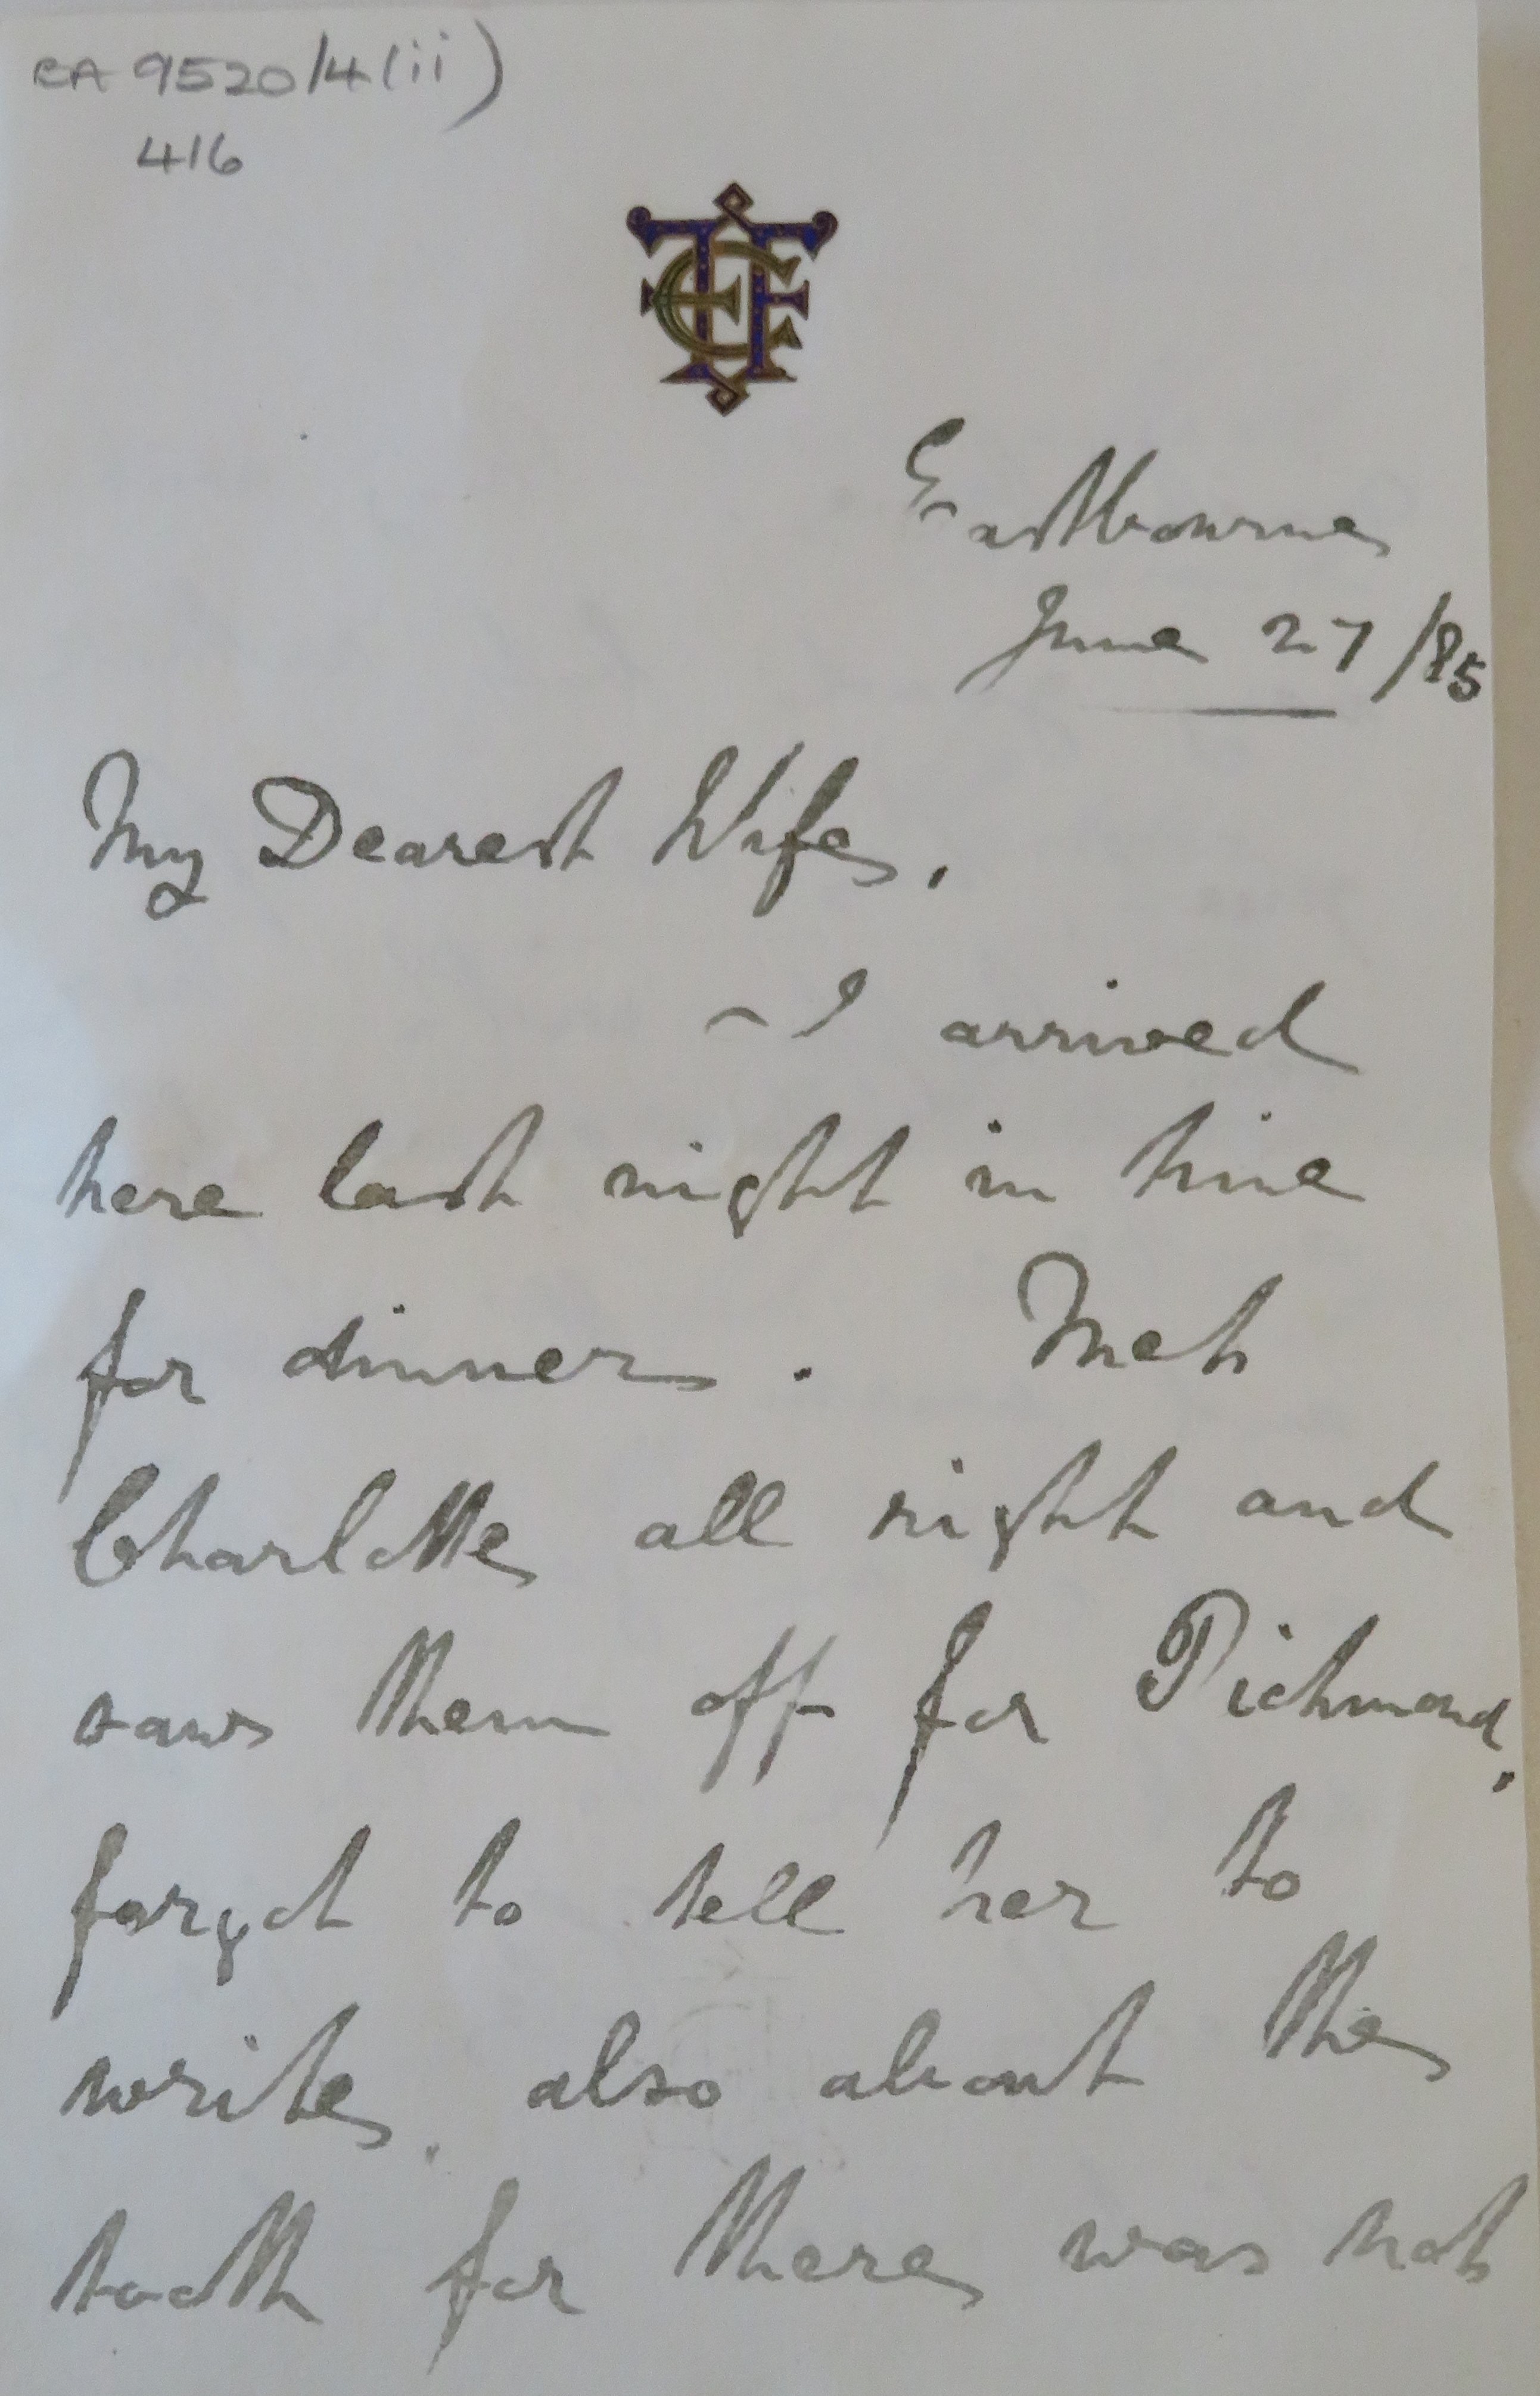 RA 9520/4(ii)
416
Eastbourne
June 27/85
My Dearest Wife,
I arrived
here last night in time
for dinner. Met
Charlotte all right and
saw them off for Richmond,
forgot to tell her to
write, also about the
tooth for there was not